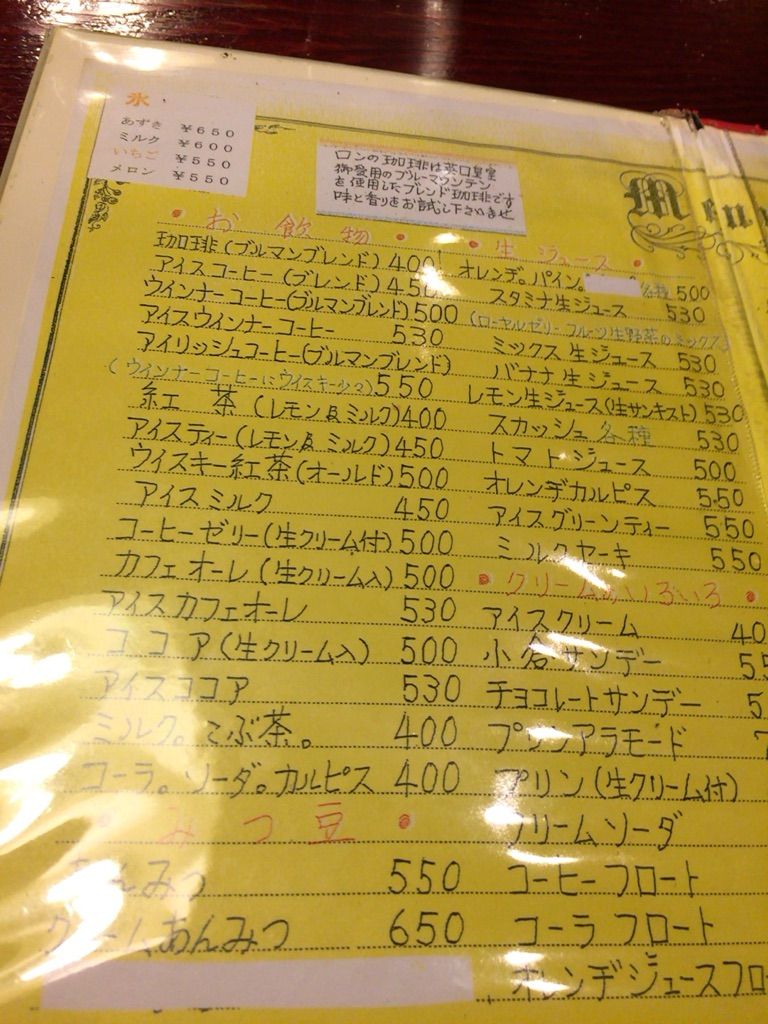 氷
あずき ¥650
ミルク ¥600
いちご ¥550
メロン ¥550
ロンの珈琲は英国皇室
御愛用のブルーマウンテン
を使用したブレンド珈琲です
味と香りをお試し下さいませ
Menu
・お飲物・
珈琲(ブルマンブレンド) 400
アイスコーヒー(ブレンド) 450
ウインナーコーヒー(ブルマンブレンド) 500
アイスウインナーコーヒー 530
アイリッシュコーヒー(ブルマンブレンド)
(ウインナーコーヒーにウイスキー少々) 550
紅 茶 (レモン&ミルク) 400
アイスティー(レモン&ミルク) 450
ウイスキー紅茶(オールド) 500
アイスミルク 450
コーヒーゼリー(生クリーム付) 500
カフェオーレ(生クリーム入) 500
アイスカフェオーレ 530
ココア(生クリーム入) 500
アイスココア 530
ミルク。こぶ茶。 400
コーラ。ソーダ。カルピス 400
・みつ豆・
あんみつ 550
クリームあんみつ 650
・生ジュース・
オレンヂ。パイン。 各種 500
スタミナ生ジュース 530
(ローヤルゼリーフルーツ生野菜のミックス)
ミックス生ジュース 530
バナナ生ジュース 530
レモン生ジュース(生サンキスト) 530
スカッシュ各種 530
トマトジュース 500
オレンヂカルピス 550
アイスグリーンティー 550
ミルクセーキ 550
・クリームいろいろ・
アイスクリーム 40
小倉サンデー 55
チョコレートサンデー 5
プリンアラモード 7
プリン(生クリーム付)
クリームソーダ
コーヒーフロート
コーラフロート
オレンヂジュースフロ